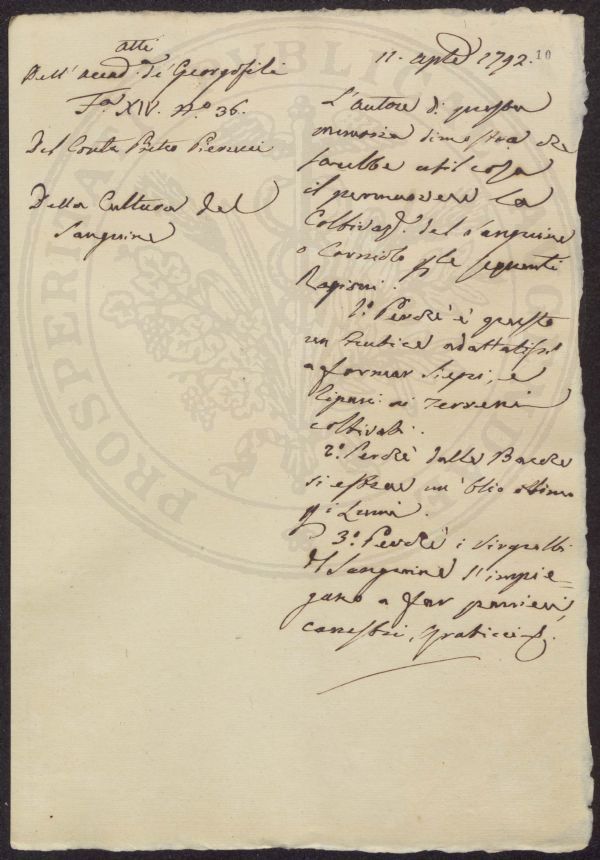 atti
Dell' accad. de' Georgofili
Fa. XIV. n.o 36.
Del Conte
Della Cultura del
Sanguine
11. aple 1792.
10
L'autore di questa
memoria dimostra che
sarebbe util cosa
il permuovere la
Coltivaz. del Sanguine
o Corniolo p le seguenti
Ragioni.
1.o Perchè è questo
un frutice adattatiss.
a formar siepi, e
Ripari ai Terreni
coltivati.
2.o Perchè dalle Bacche
si estrae un' Olio ottimo
p i Lumi.
3.o Perchè i virgulti
di Sanguine s'impie-
gano a far panieri,
canestri, graticci
PROSPERITATI PUBLICAE